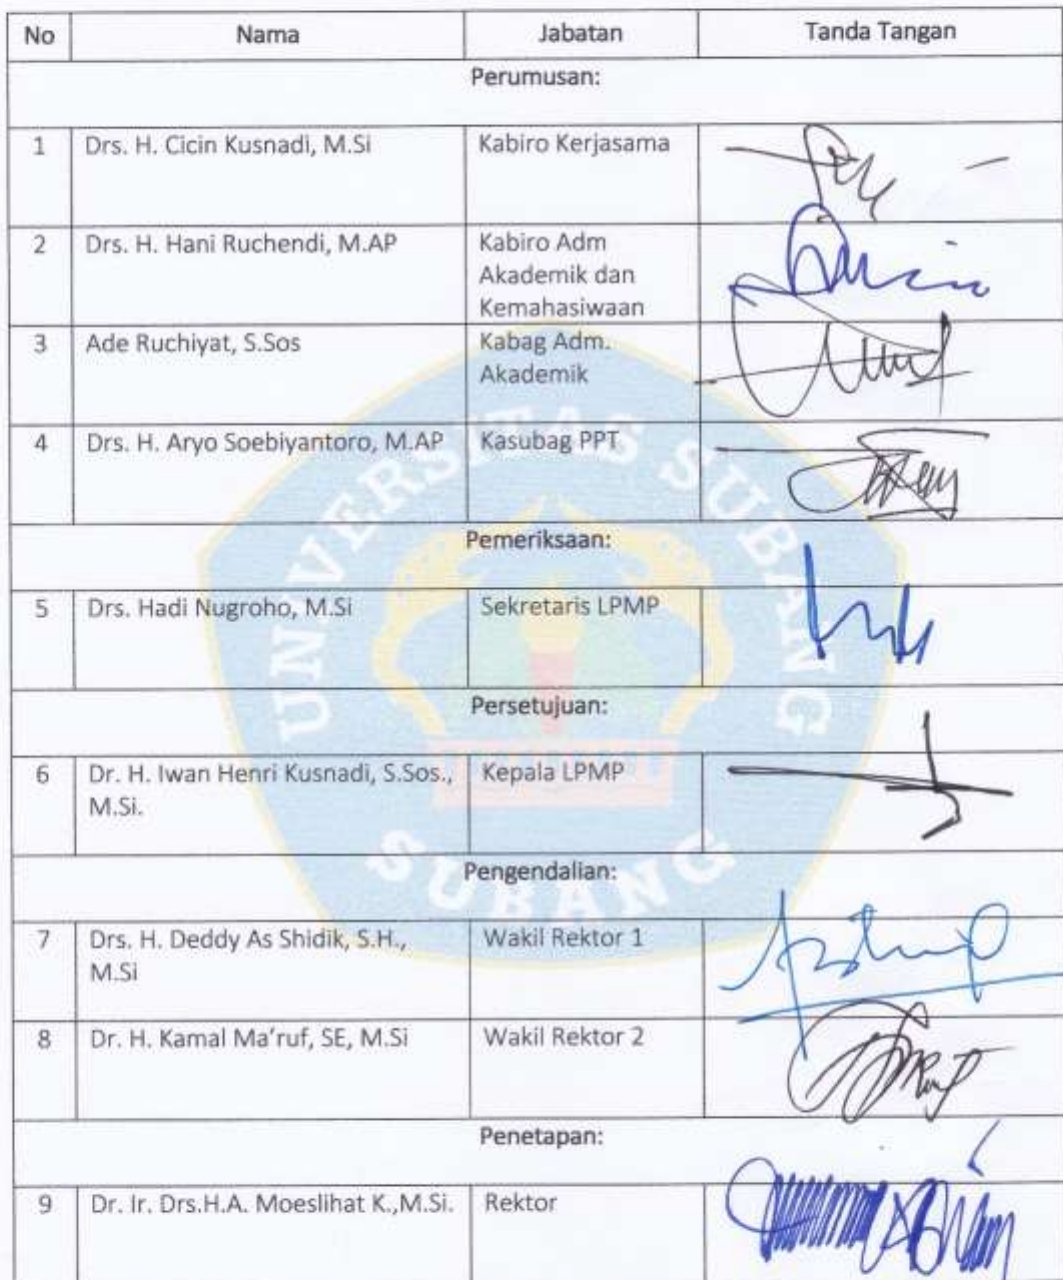 No Nama Jabatan Tanda Tangan
Perumusan:
1 Drs. H. Cicin Kusnadi, M.Si Kabiro Kerjasama
2 Drs. H. Hani Ruchendi, M.AP Kabiro Adm
Akademik dan
Kemahasiwaan
3 Ade Ruchiyat, S.Sos Kabag Adm.
Akademik
4 Drs. H. Aryo Soebiyantoro, M.AP Kasubag PPT
Pemeriksaan:
5 Drs. Hadi Nugroho, M.Si Sekretaris LPMP
Persetujuan:
6 Dr. H. Iwan Henri Kusnadi, S.Sos., Kepala LPMP
M.Si.
Pengendalian:
7 Drs. H. Deddy As Shidik, S.H., Wakil Rektor 1
M.Si
8 Dr. H. Kamal Ma'ruf, SE, M.Si Wakil Rektor 2
Penetapan:
9 Dr. Ir. Drs.H.A. Moeslihat K.,M.Si. Rektor
UNIVERSITAS SUBANG
SUBANG